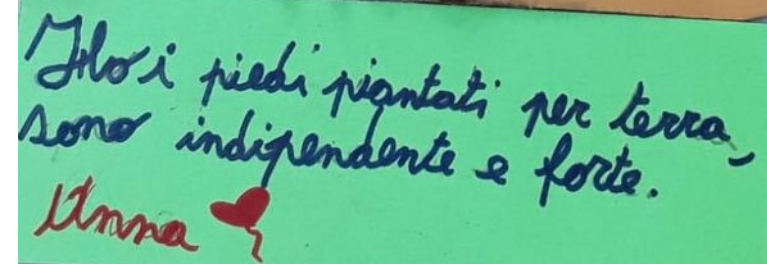 Ho i piedi piantati per terra,
sono indipendente e forte.
Anna